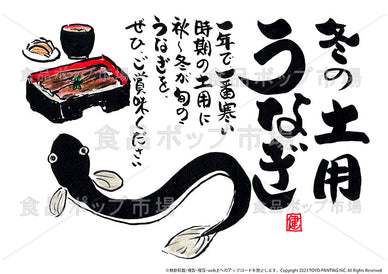 冬の土用
うなぎ
一年で一番寒い
時期の土用に
秋～冬が旬の
うなぎを、
ぜひ、ご賞味ください
食品ポップ市場
食品ポップ市場
食品ポップ市場
食品ポップ市場
※無断転載・複製・複写・web上へのアップロードを禁止します。 Copyright 2023 TOYO-PRINTING INC. All Rights Reserved.